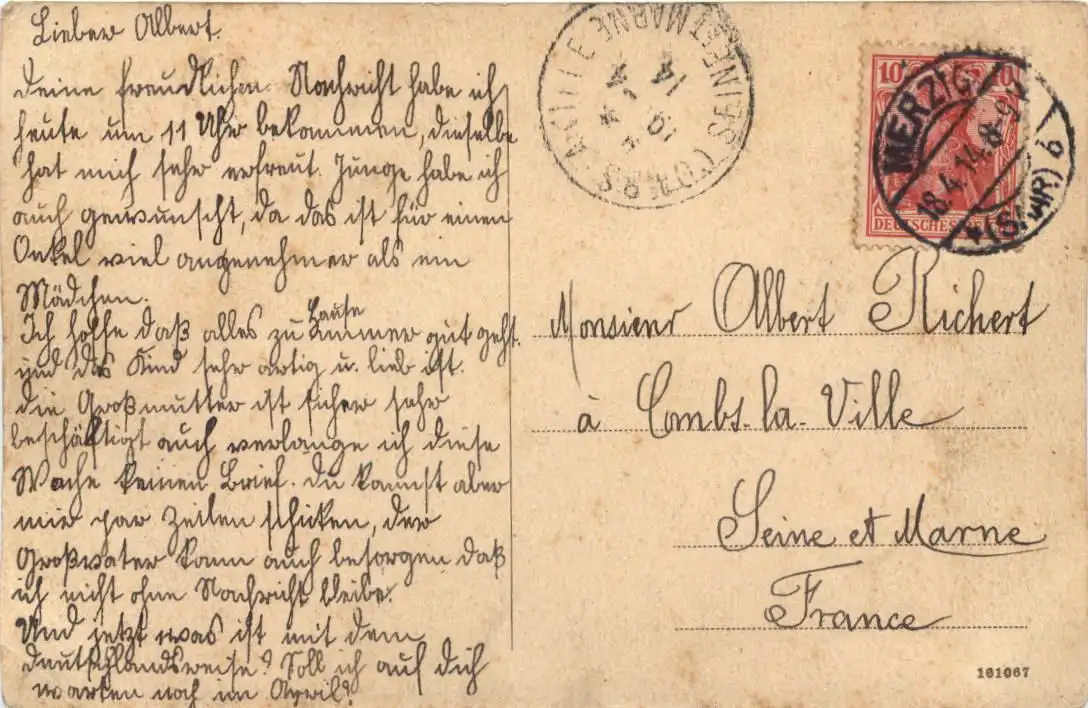 Lieber Albert.
Deine freudlichen Nachricht habe ich
heute um 11 Uhr bekommen, dieselbe
hat mich sehr erfreut. Junge habe ich
auch gewunscht, da das ist für einen
Onkel viel angenehmer als ein
Mädchen.
Ich hoffe daß alles zu Hause immer gut geht.
und das Kind sehr artig u. lieb ist.
die Großmutter ist sicher sehr
beschäftigt auch verlange ich diese
Woche keinen Brief. Du kannst aber
mir par Zeilen schicken, der
Großvater kann auch besorgen daß
ich nicht ohne Nachricht bleibe.
Und jetzt was ist mit dem
Deutschlandsreise? Soll ich auf dich
warten noch im April?
SEINE ET MARNE
10
10
MERZIG
18.4.14. 8-9
*(SAAR) b
DEUTSCHES
Monsieur Albert Richert
à Combs-la-Ville
Seine et Marne
France
161067